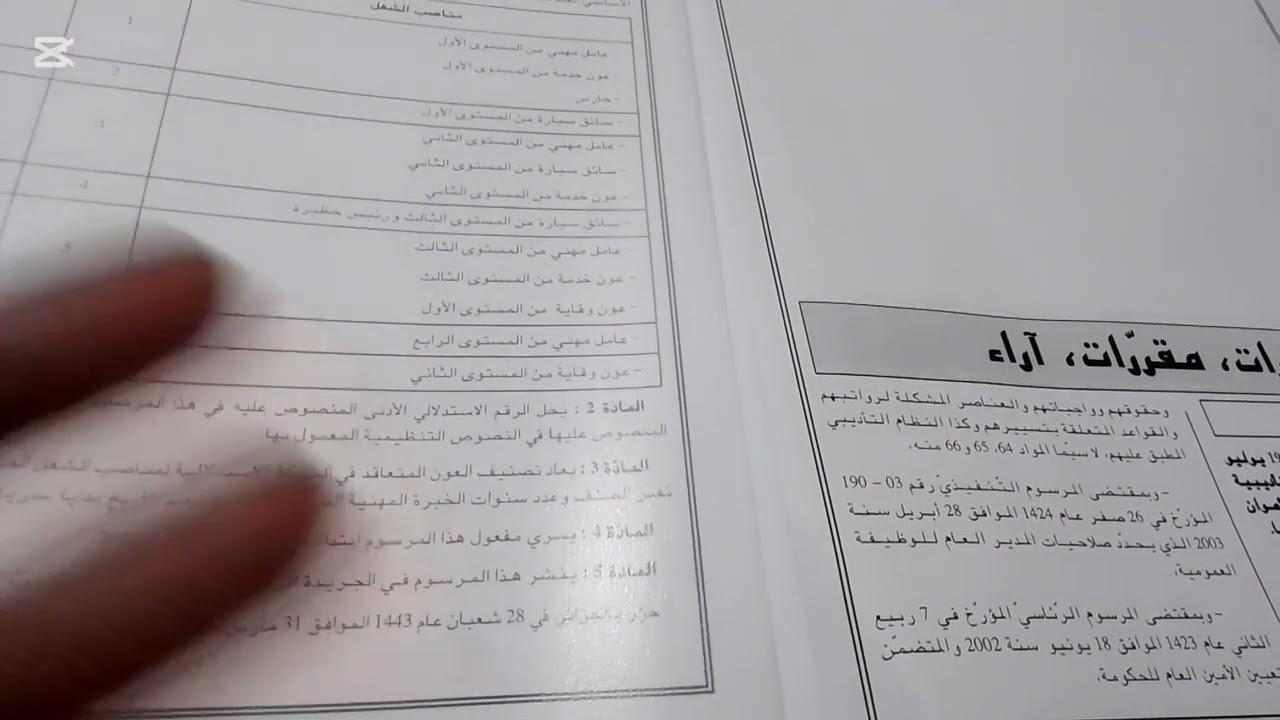 مناصب الشغل
1
عامل مهني من المستوى الأول
عون خدمة من المستوى الأول
- حارس
2
- سائق سيارة من المستوى الأول
- عامل مهني من المستوى الثاني
- سائق سيارة من المستوى الثاني
- عون خدمة من المستوى الثاني
4
- سائق سيارة من المستوى الثالث ورئيس حظيرة
5
- عامل مهني من المستوى الثالث
- عون خدمة من المستوى الثالث
- عون وقاية من المستوى الأول
- عامل مهني من المستوى الرابع
- عون وقاية من المستوى الثاني
المادّة 2 : يحل الرقم الاستدلالي الأدنى المنصوص عليه في هذا
المنصوص عليها في النصوص التنظيمية المعمول بها
المادّة 3 : يعاد تصنيف العون المتعاقد في
نفس الصنف وعدد سنوات الخبرة المهنية
المادّة 4 : يسري مفعول هذا المرسوم ابتدا
المادّة 5 : ينشر هذا المرسوم في الجريدة
حرّر بالجزائر في 28 شعبان عام 1443 الموافق 31 مارس
ات، مقرّرات، آراء
وحقوقهم وواجباتهم والعناصر المشكلة لرواتبهم
والقواعد المتعلقة بتسييرهم وكذا النظام التأديبي
المطبق عليهم، لاسيّما المواد 64، 65 و66 منه،
- وبمقتضى المرسوم التّنفيذيّ رقم 03 - 190
المؤرّخ في 26 صفر عام 1424 الموافق 28 أبريل سنة
2003 الذي يحدّد صلاحيات المدير العام للوظيفة
العمومية،
- وبمقتضى المرسوم الرّئاسيّ المؤرّخ في 7 ربيع
الثاني عام 1423 الموافق 18 يونيو سنة 2002 والمتضمّن
تعيين الأمين العام للحكومة،
19 يوليو